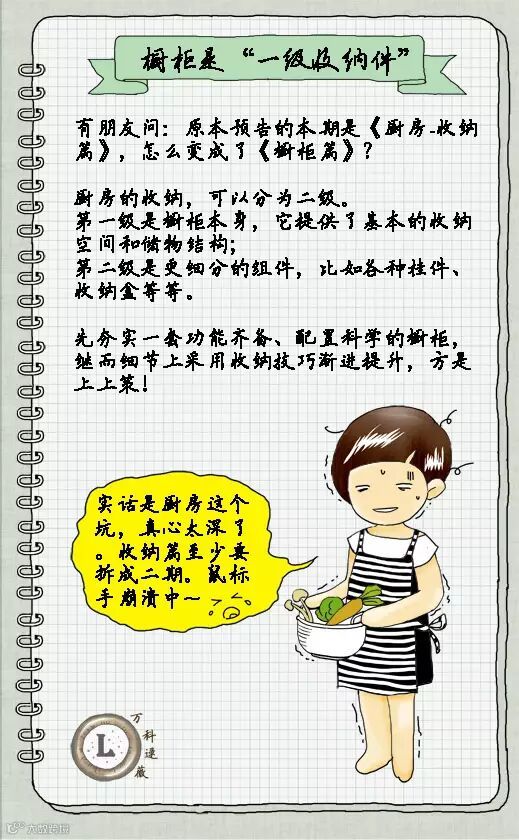 橱柜是“一级收纳件”
有朋友问：原本预告的本期是《厨房-收纳
篇》，怎么变成了《橱柜篇》？
厨房的收纳，可以分为二级。
第一级是橱柜本身，它提供了基本的收纳
空间和储物结构；
第二级是更细分的组件，比如各种挂件、
收纳盒等等。
先夯实一套功能齐备、配置科学的橱柜，
继而细节上采用收纳技巧渐进提升，方是
上上策！
实话是厨房这个
坑，真心太深了
。收纳篇至少要
拆成二期。鼠标
手崩溃中～
L
万科逯薇
大数跨境